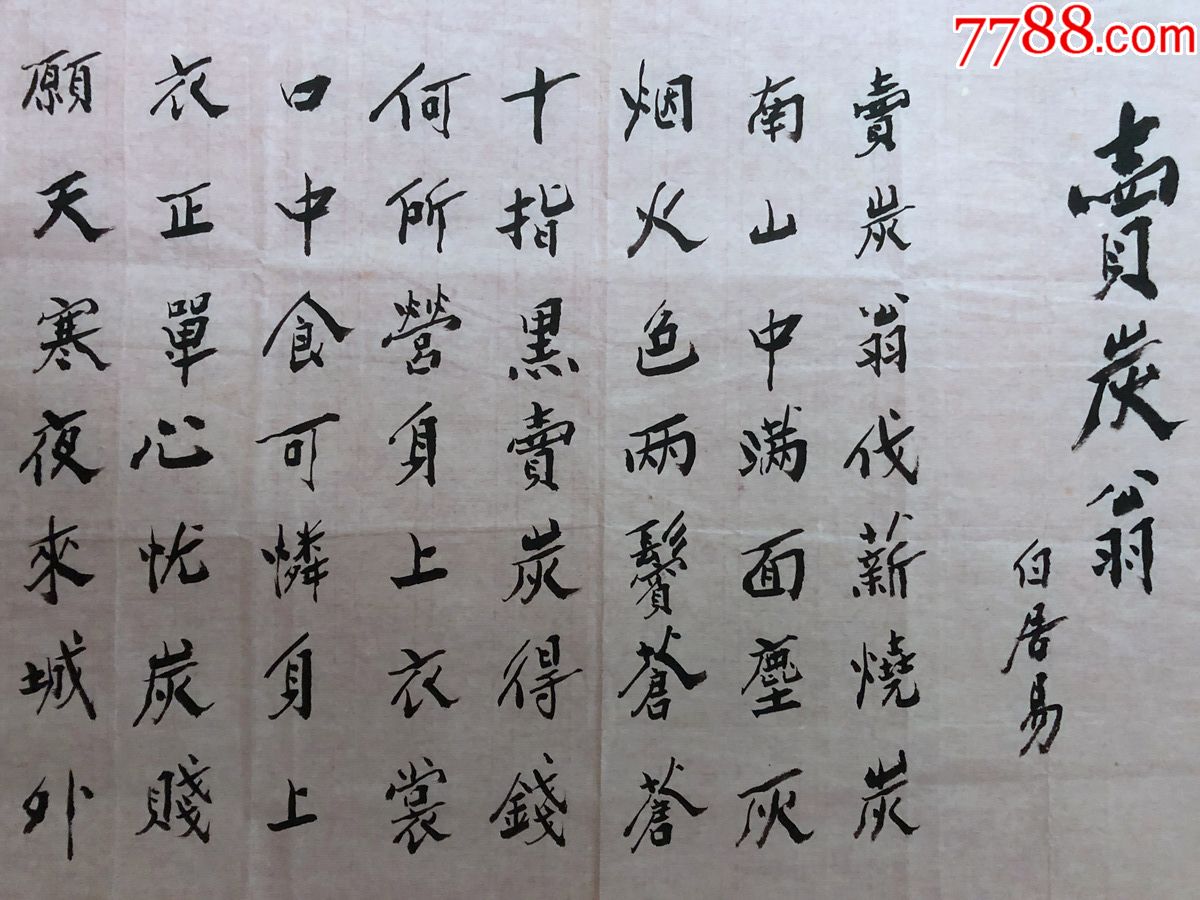 7788.com
賣炭翁
白居易
賣炭翁伐薪燒炭
南山中滿面塵灰
烟火色兩鬢蒼蒼
十指黑賣炭得錢
何所營身上衣裳
口中食可憐身上
衣正單心忧炭賤
願天寒夜來城外